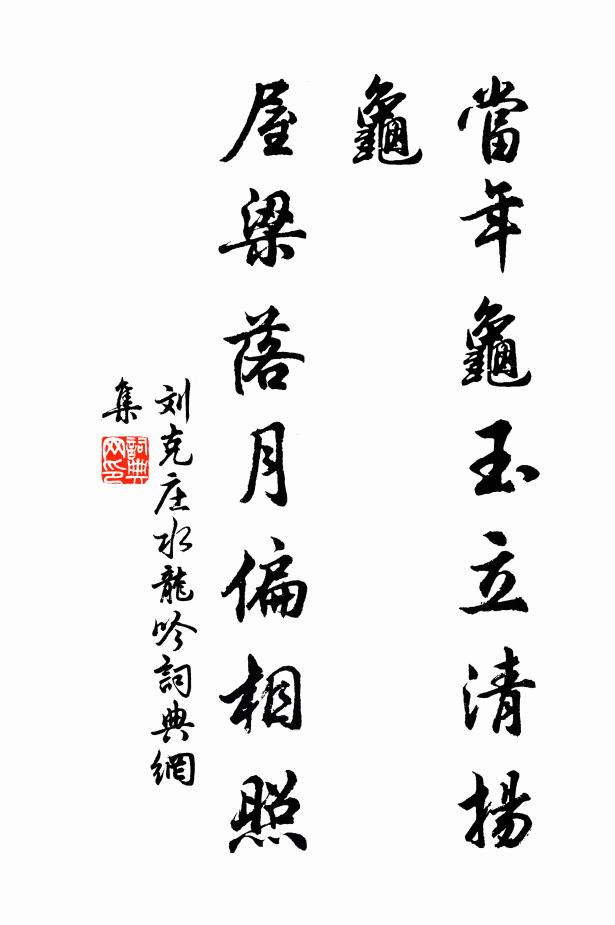 當年龜玉立清揚
龜
屋梁落月偏相照
刘克庄水龍吟詞典網
集
詞典網印